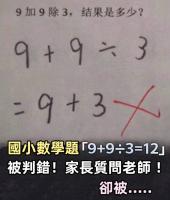 9 加 9 除 3，结果是多少？
9 + 9 ÷ 3
= 9 + 3
國小數學題「9+9÷3=12」
被判錯！家長質問老師！
卻被.....